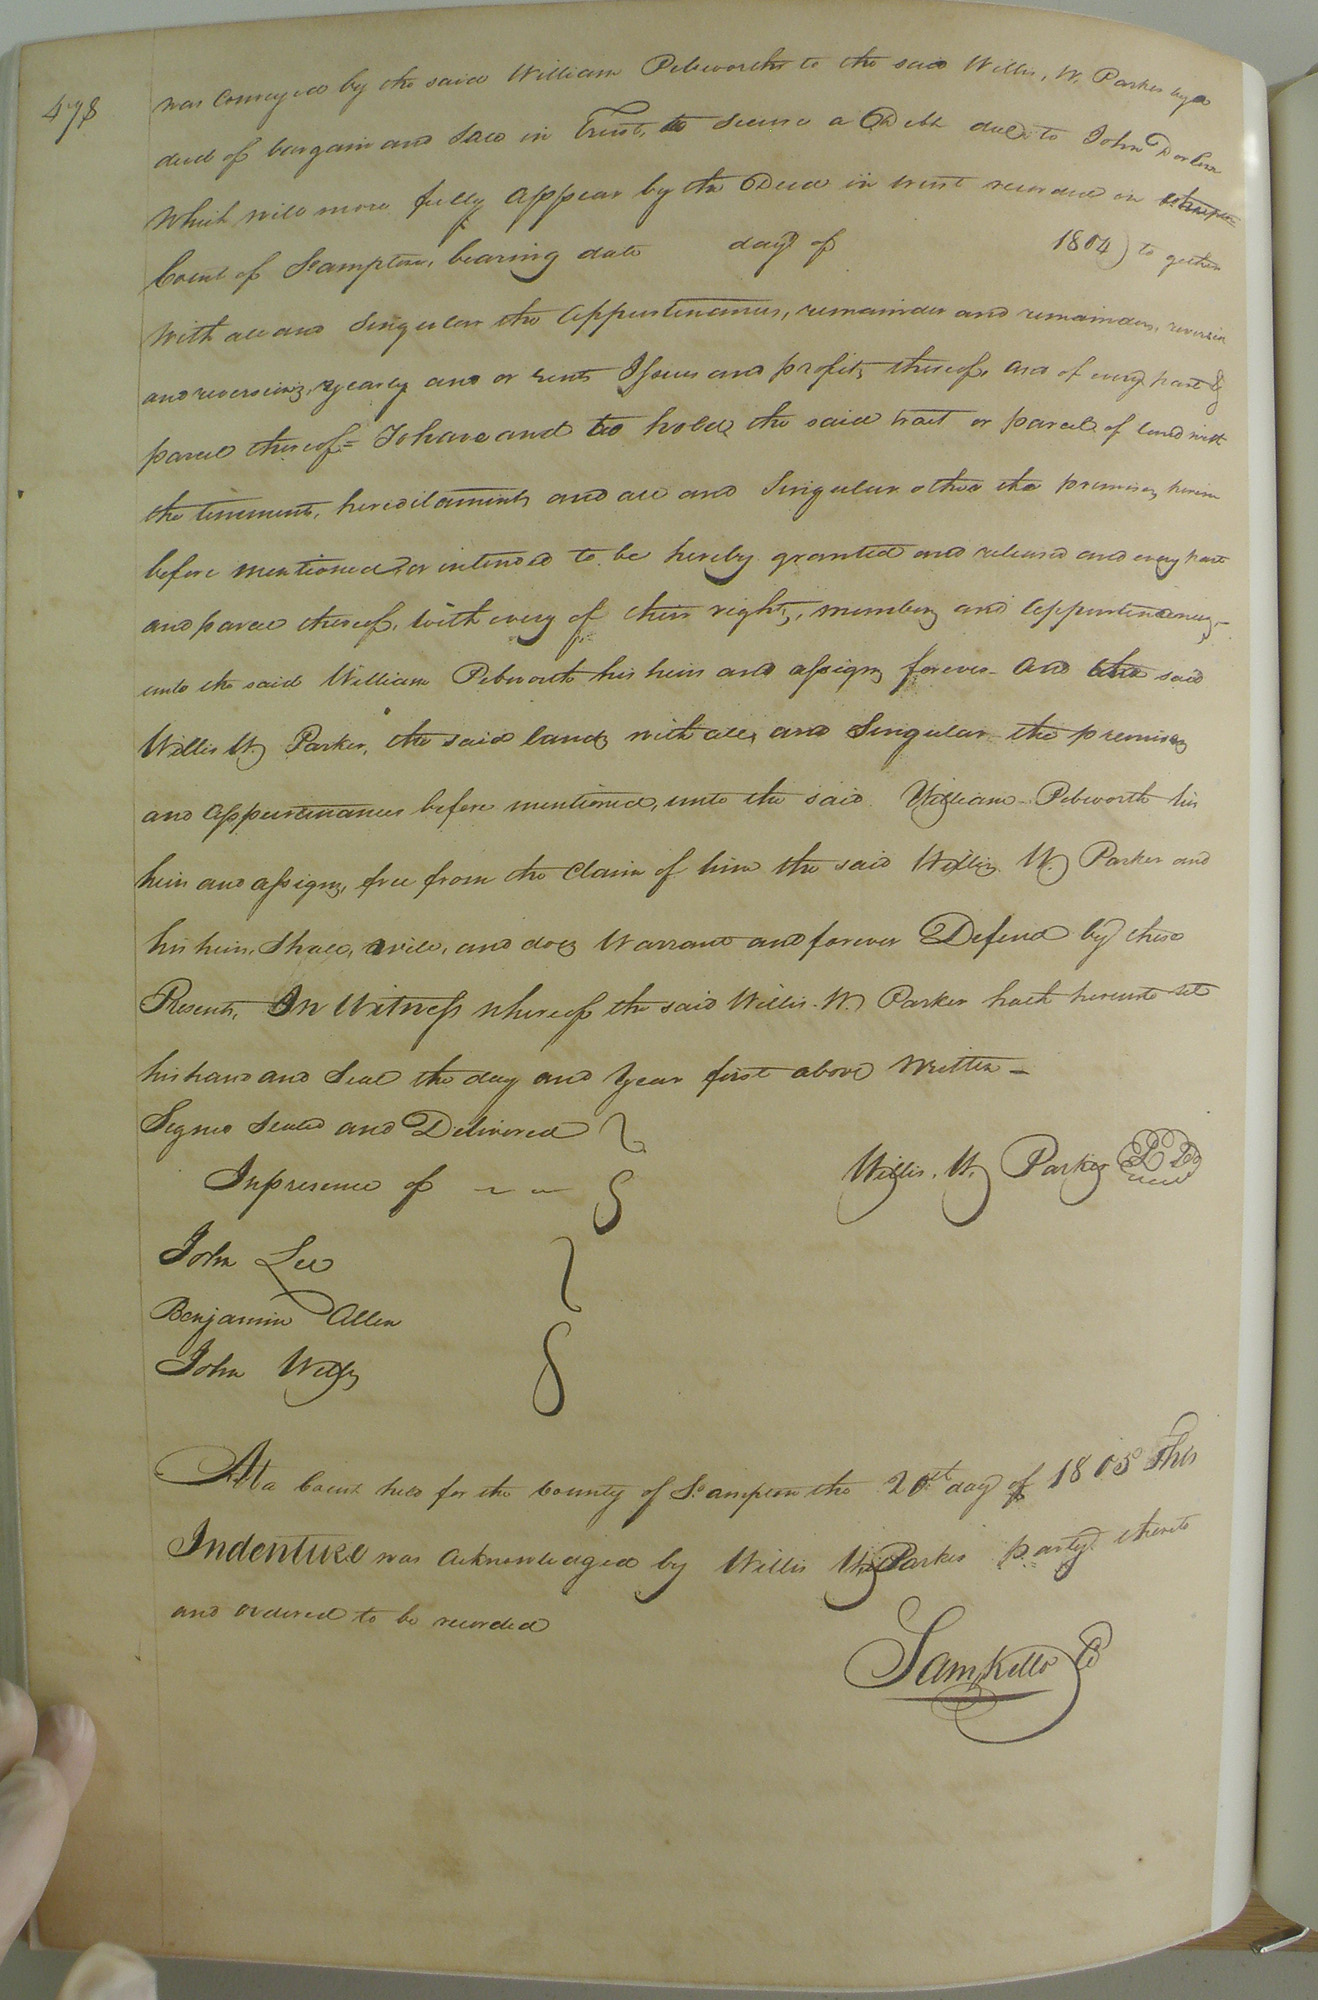 478
was Conveyed by the said William Pebworth to the said Willis, W. Parker by a
deed of bargain and Sale in Trust, to secure a Debt due to John
Which will more fully appear by the Deed in trust recorded in
Court of So.ampton, bearing date day of 1804) to gether
With all and Singular the appurtenances, remainder and remainders, reversion
and reversions, yearly and or rents Issues and profits thereof, and of every part &
parcel thereof= To have and to hold, the said tract or parcel of land with
the tenements, hereditaments and all and Singular other the premises herein
before mentioned, or intended to be hereby granted and released and every part
and parcel thereof, With every of their rights, members and appurtenances,-
unto the said William Pebworth his heirs and assigns forever- and the said
Willis W. Parker, the said lands with all, and Singular the premises
and appurtenances before mentioned, unto the said William Pebworth his
heirs and assigns, free from the Claim of him the said Willis W. Parker and
his heirs, Shall, will, and does Warrant and forever Defend by these
Presents, In Witness whereof the said Willis W. Parker hath hereunto set
his hand and Seal the day and Year first above Written -
Signed Sealed and Delivered
In presence of - -
Willis, W. Parker
John Lee
Benjamin Allen
John
At a Court held for the County of So.ampton the 20th day of 1805 This
Indenture was acknowledged by Willis Parker party thereto
and ordered to be recorded
Sam Kello C